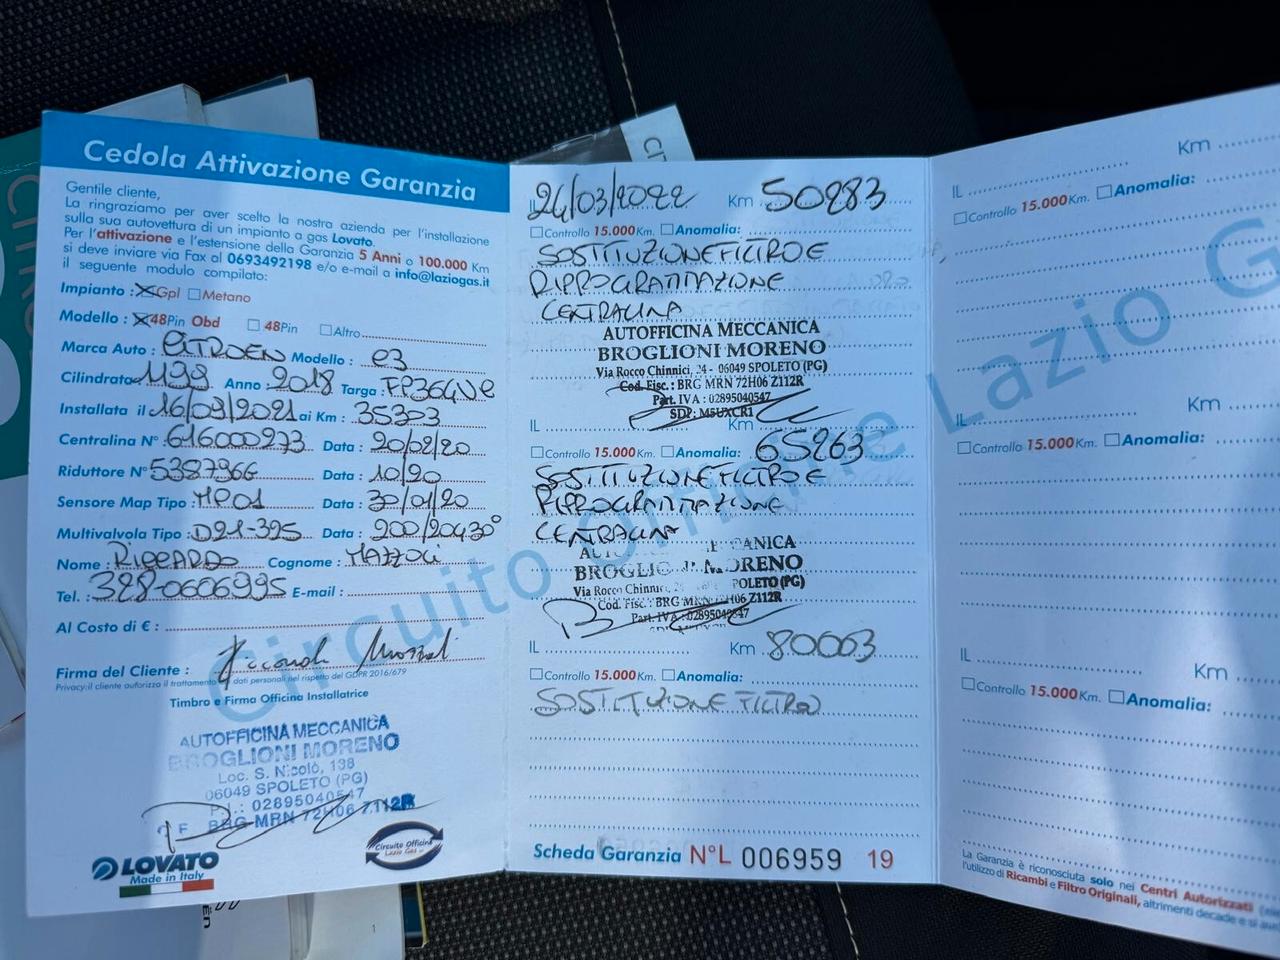 Cedola Attivazione Garanzia
Gentile cliente,
La ringraziamo per aver scelto la nostra azienda per l'installazione
sulla sua autovettura di un impianto a gas Lovato.
Per l'attivazione e l'estensione della Garanzia 5 Anni o 100.000 Km
si deve inviare via Fax al 0693492198 e/o e-mail a info@laziogas.it
il seguente modulo compilato:
Impianto: Gpl Metano
Modello: 48Pin Obd 48Pin Altro
Marca Auto: CITROEN Modello: C3
Cilindrata 1199 Anno: 2018 Targa:
Installata il 16/09/2021 ai Km: 35303
Centralina N° 616000973 Data: 20/02/20
Riduttore N° 5387966 Data: 10/20
Sensore Map Tipo: MP01 Data: 30/01/20
Multivalvola Tipo: D21-395 Data: 200/20430°
Nome: RICCARDO Cognome: MAZZOLI
Tel.: 328-0606995 E-mail:
Al Costo di €:
Firma del Cliente:
Privacy: il cliente autorizzo il trattamento dati personali nel rispetto del GDPR 2016/679
Timbro e Firma Officina Installatrice
AUTOFFICINA MECCANICA
BROGLIONI MORENO
Loc. S. Nicolò, 138
06049 SPOLETO (PG)
P.I.: 02895040547
C.F. BRG MRN 72H06 Z112R
LOVATO
Made in Italy
Circuito Officine
Lazio Gas
IL 24/03/2022 Km 50283
Controllo 15.000Km. Anomalia:
SOSTITUZIONE FILTRO E
RIPROGRAMMAZIONE
CENTRALINA
AUTOFFICINA MECCANICA
BROGLIONI MORENO
Via Rocco Chinnici, 24 - 06049 SPOLETO (PG)
Cod. Fisc.: BRG MRN 72H06 Z112R
Part. IVA: 02895040547
SDP: M5UXCR1
IL Km 65263
Controllo 15.000Km. Anomalia:
SOSTITUZIONE FILTRO E
RIPROGRAMMAZIONE
CENTRALINA
MECCANICA
BROGLIO MORENO
Via Rocco Chinnici POLETO (PG)
Cod. Fisc.: BRG MRN 72H06 Z112R
Part. IVA: 02895040547
IL Km 80063
Controllo 15.000Km. Anomalia:
SOSTITUZIONE FILTRO
Scheda Garanzia N°L 006959 19
IL Km
Controllo 15.000Km. Anomalia:
IL Km
Controllo 15.000Km. Anomalia:
IL Km
Controllo 15.000Km. Anomalia:
La Garanzia è riconosciuta solo nei Centri Autorizzati
l'utilizzo di Ricambi e Filtro Originali, altrimenti decade e si
Circuito Officine Lazio G